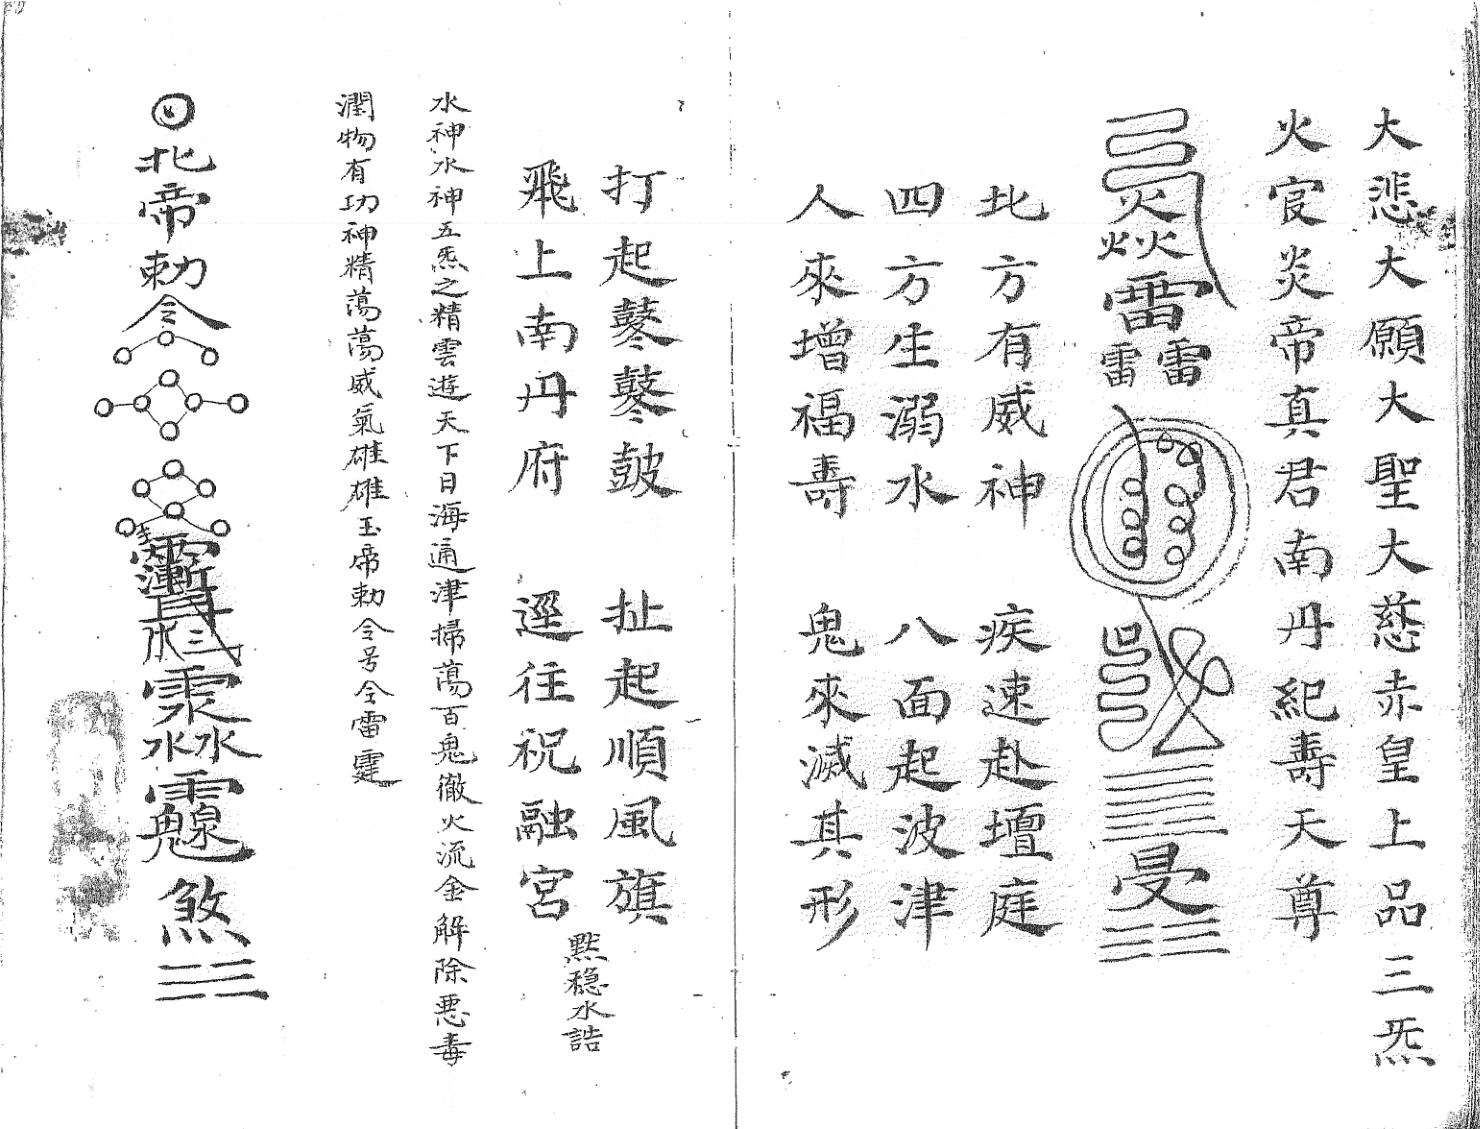 大悲大願大聖大慈赤皇上品三炁
火官炎帝真君南丹紀壽天尊
炎焱雷雷雷
曼
北方有威神 疾速赴壇庭
四方生溺水 八面起波津
人來增福壽 鬼來滅其形
打起鼕鼕鼓 扯起順風旗
飛上南丹府 逕往祝融宮
黙稳水誥
水神水神五炁之精雲遊天下日海通津掃蕩百鬼徹火流金解除惡毒
潤物有功神精蕩蕩威氣雄雄玉帝勅令号令雷霆
北帝勅令
煞